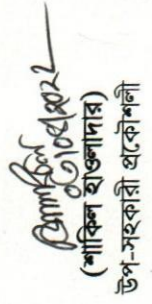 ০১/০৪/২০২২
(শাকিল হাওলাদার)
উপ-সহকারী প্রকৌশলী